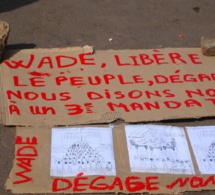 WADE, LIBÈRE
LE PEUPLE, DÉGAGE
NOUS DISONS NON
À UN 3e MANDAT
WADE
DÉGAGE NON